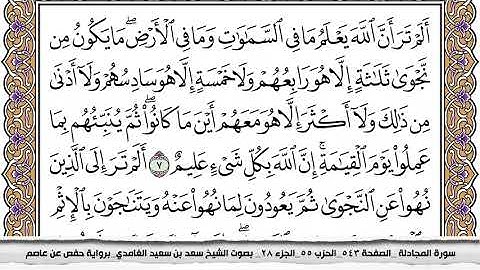 أَلَمْ تَرَ أَنَّ ٱللَّهَ يَعْلَمُ مَا فِى ٱلسَّمَٰوَٰتِ وَمَا فِى ٱلْأَرْضِ ۖ مَا يَكُونُ مِن
نَّجْوَىٰ ثَلَٰثَةٍ إِلَّا هُوَ رَابِعُهُمْ وَلَا خَمْسَةٍ إِلَّا هُوَ سَادِسُهُمْ وَلَآ أَدْنَىٰ
مِن ذَٰلِكَ وَلَآ أَكْثَرَ إِلَّا هُوَ مَعَهُمْ أَيْنَ مَا كَانُوا۟ ۖ ثُمَّ يُنَبِّئُهُم بِمَا
عَمِلُوا۟ يَوْمَ ٱلْقِيَٰمَةِ ۚ إِنَّ ٱللَّهَ بِكُلِّ شَىْءٍ عَلِيمٌ ٧ أَلَمْ تَرَ إِلَى ٱلَّذِينَ
نُهُوا۟ عَنِ ٱلنَّجْوَىٰ ثُمَّ يَعُودُونَ لِمَا نُهُوا۟ عَنْهُ وَيَتَنَٰجَوْنَ بِٱلْإِثْمِ
سورة المجادلة _الصفحة ٥٤٣_الحزب ٥٥_الجزء ٢٨_ بصوت الشيخ سعد بن سعيد الغامدي_برواية حفص عن عاصم